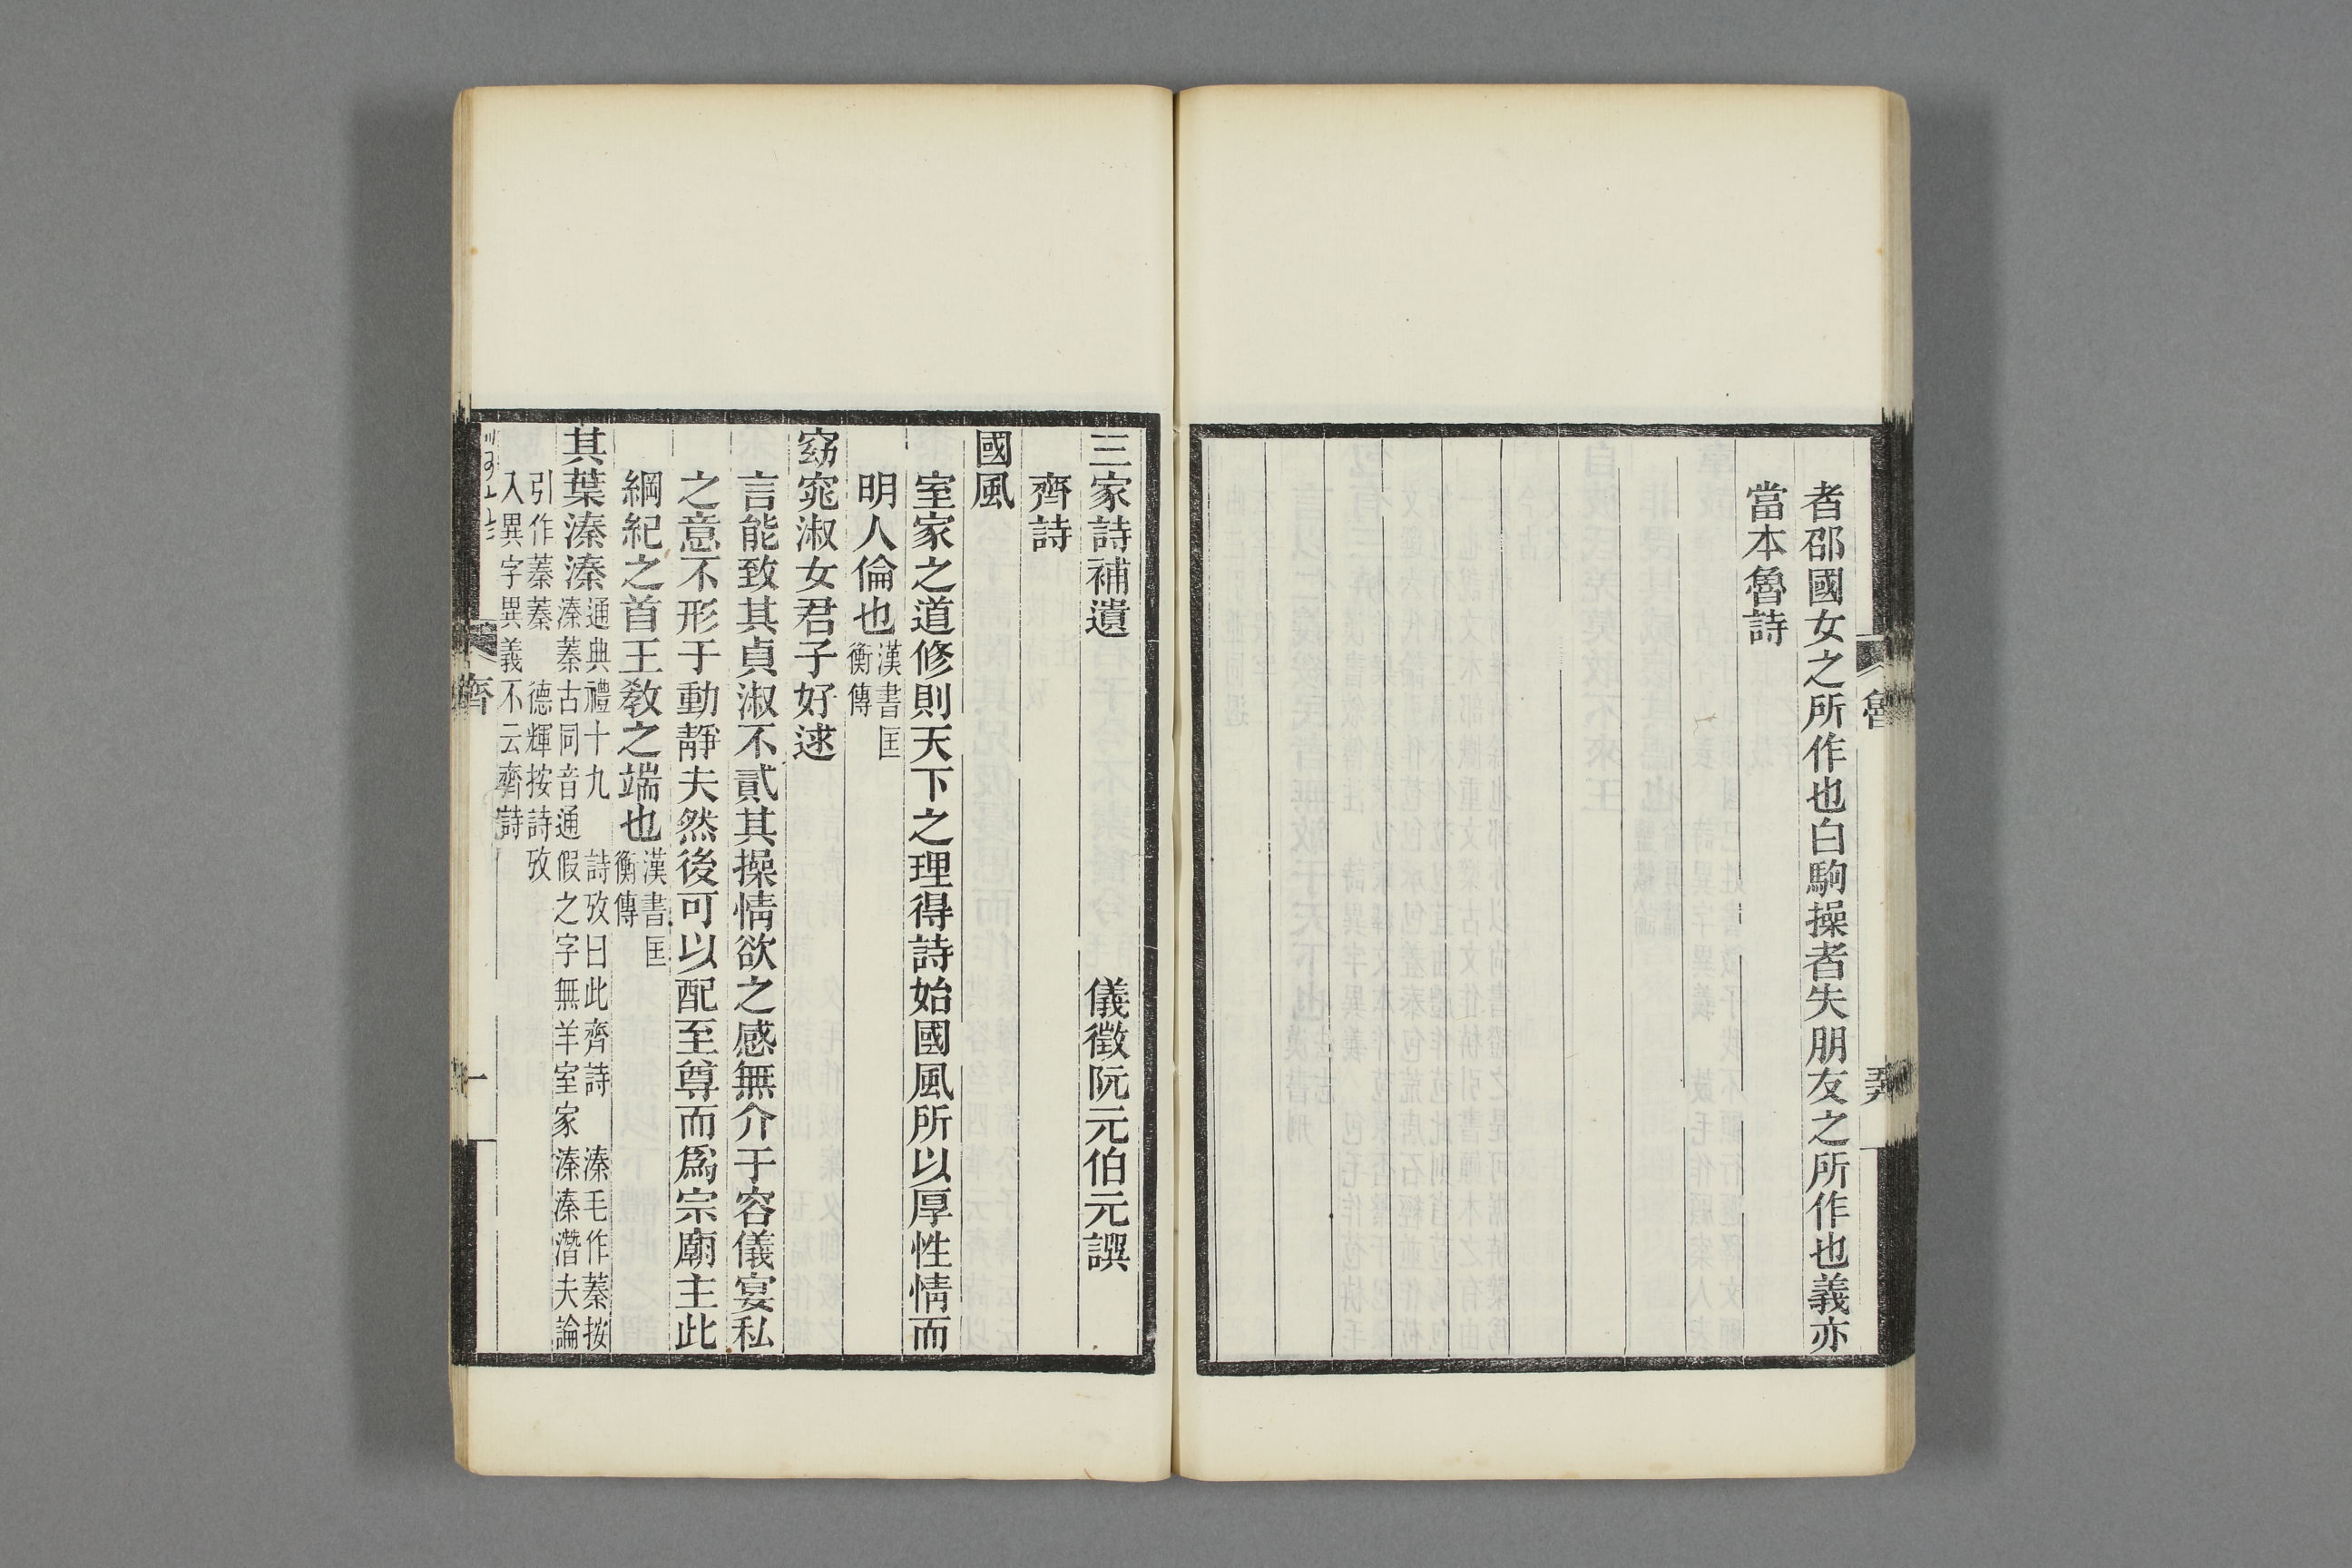 者邵國女之所作也白駒操者失朋友之所作也義亦
當本魯詩
魯
三家詩補遺 儀徵阮元伯元譔
齊詩
國風
室家之道修則天下之理得詩始國風所以厚性情而
明人倫也漢書匡衡傳
窈窕淑女君子好逑
言能致其貞淑不貳其操情欲之感無介于容儀宴私
之意不形于動靜夫然後可以配至尊而爲宗廟主此
綱紀之首王敎之端也漢書匡衡傳
其葉溱溱通典禮十九 詩攷曰此齊詩 溱毛作蓁按
溱蓁古同音通假之字無羊室家溱溱潛夫論
引作蓁蓁 德輝按詩攷
入異字異義不云齊詩
齊 一